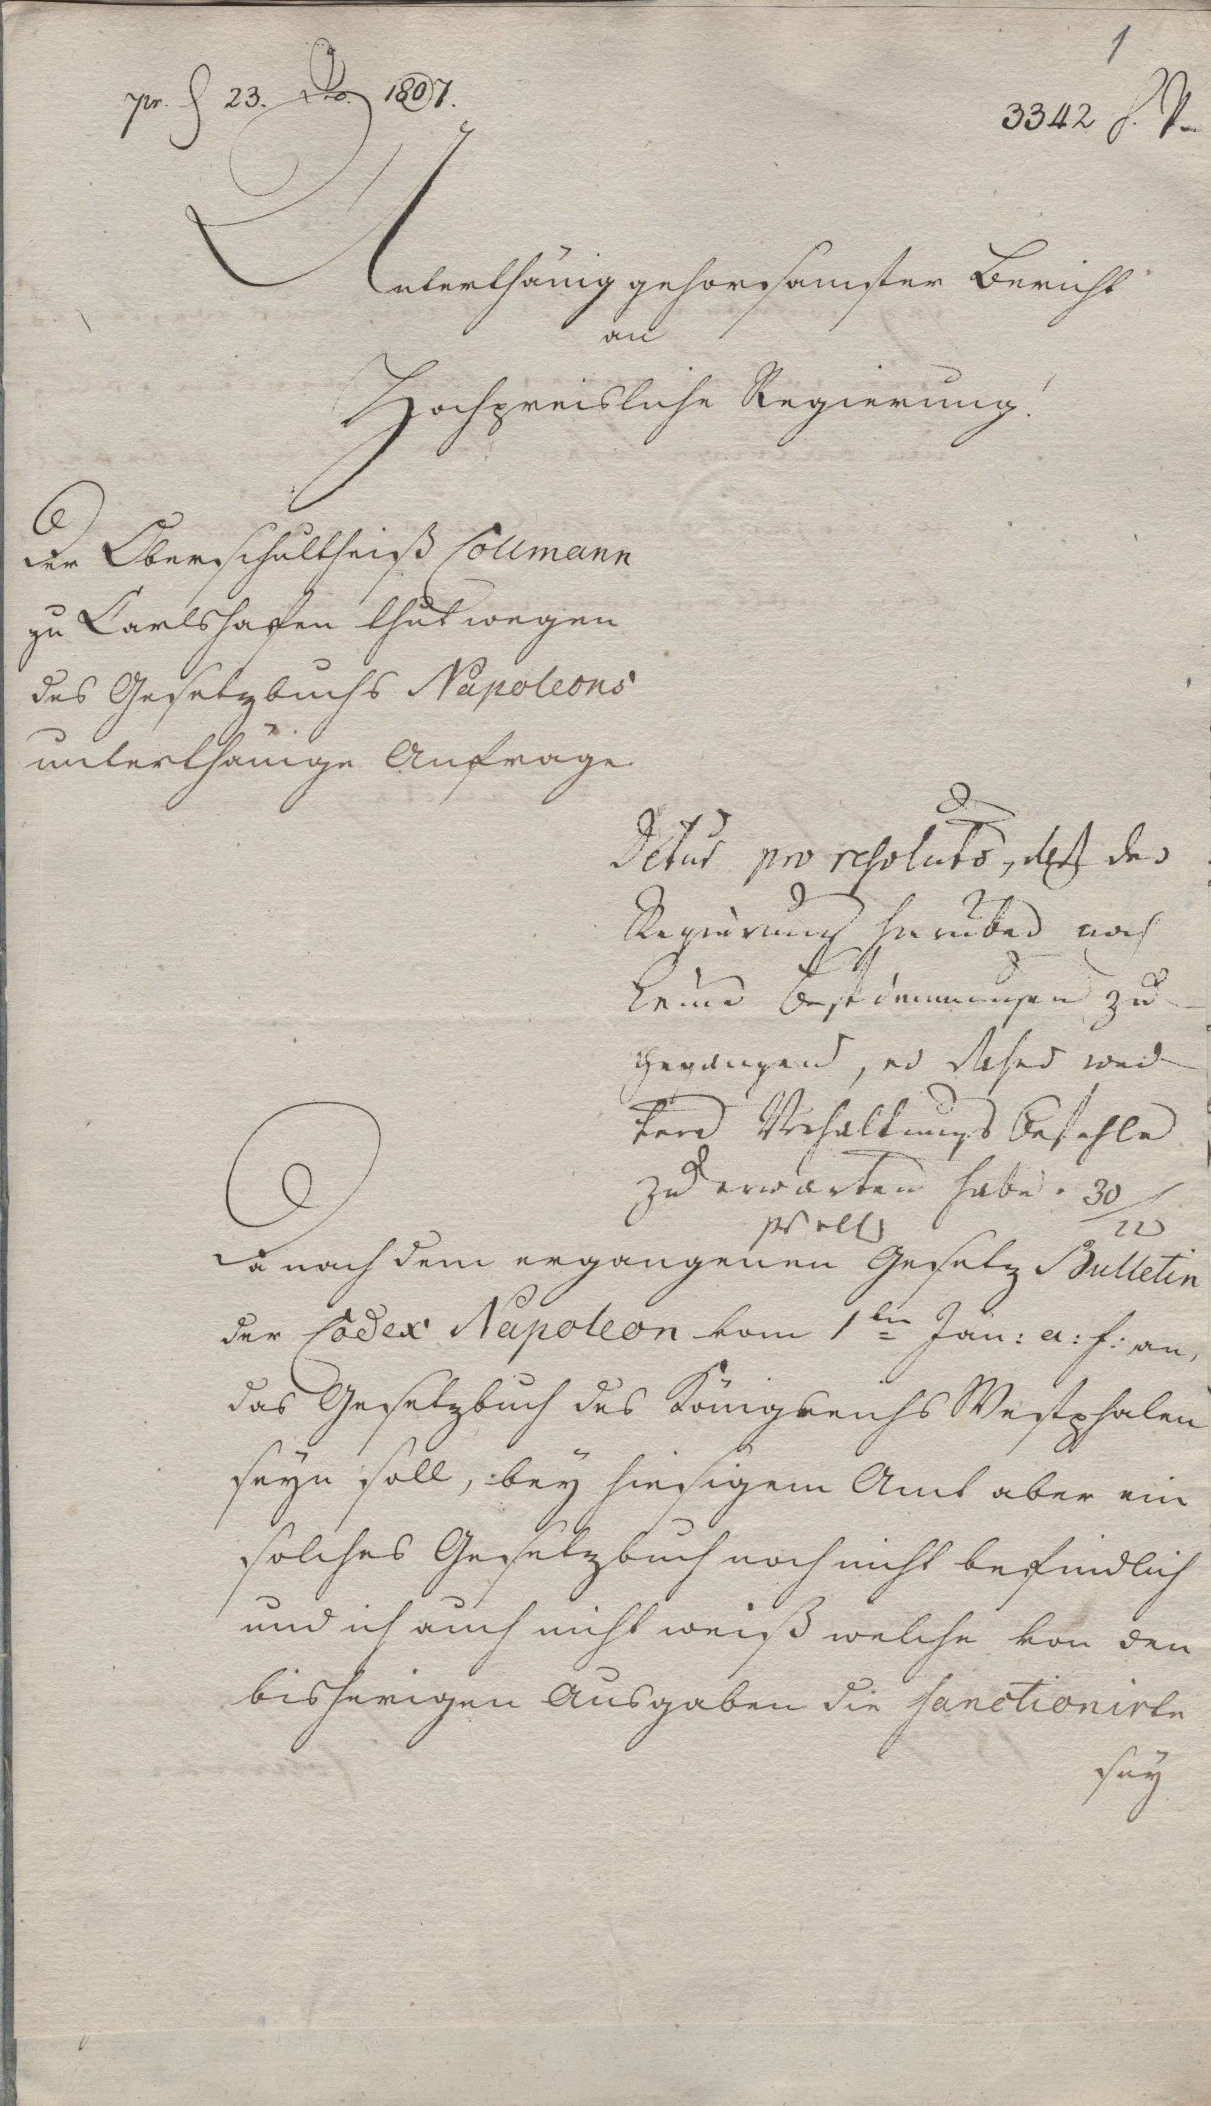 1
pr. 23. Dec. 1807.
3342
Unterthänig gehorsamster Bericht
an
Hochpreisliche Regierung!
der Oberschultheiß Collmann
zu Carlshafen thut wegen
des Gesetzbuchs Napoleons
unterthänige Anfrage.
Detur pro resoluto, daß der
Regierung hierüber noch
keine Bestimmungen zu-
gegangen, er daher wei-
tere Verhaltungs Befehle
zu erwarten habe. 30
Da nach dem ergangenen Gesetz Bulletin
der Codex Napoleon vom 1ten Jan: a: f: an,
das Gesetzbuch des Königreichs Westphalen
seyn soll, bey hiesigem Amt aber ein
solches Gesetzbuch noch nicht befindlich
und ich auch nicht weiß welche von den
bisherigen Ausgaben die sanctionirte
sey